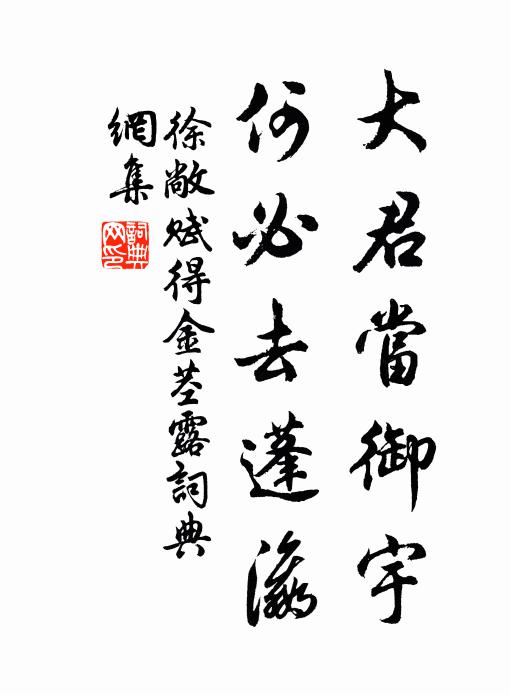 大君當御宇
何必去蓬瀛
徐敞賦得金莖露詞典
網集
詞典
网印